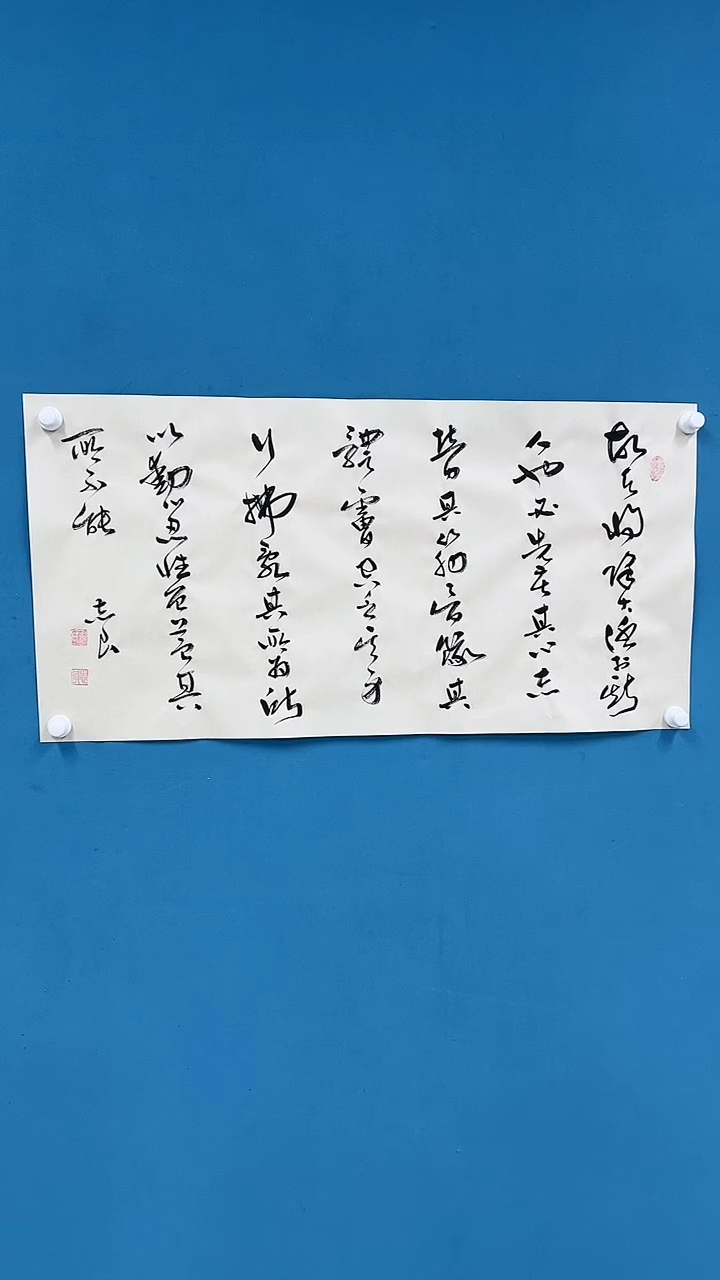 故天将降大任於斯
人也必先苦其心志
劳其筋骨餓其
體膚空乏其身
行拂亂其所為所
以動心忍性曾益其
所不能
志良